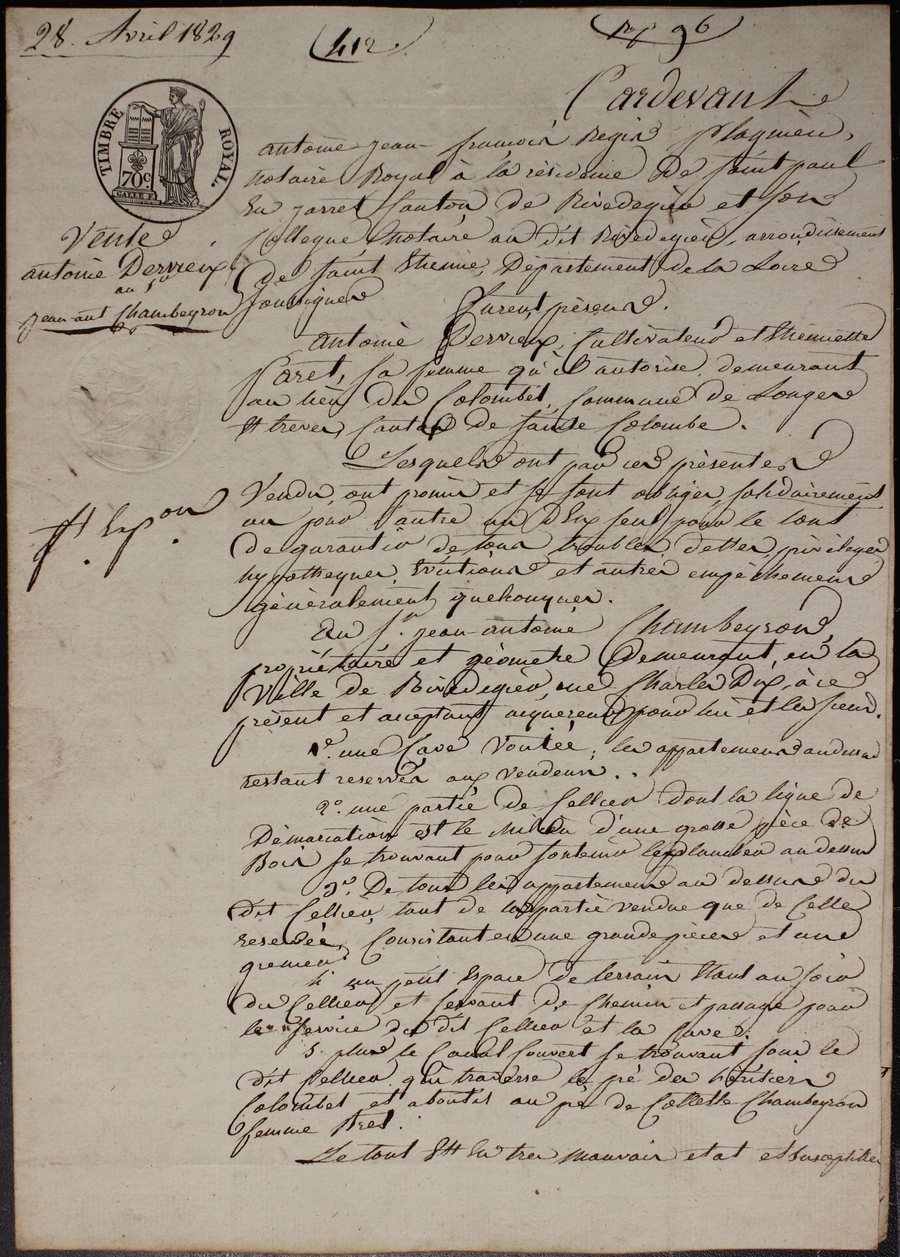 28. Avril 1829
412
96
Pardevant
TIMBRE ROYAL.
70c
antoine jean françois Regis Plagnieu,
notaire Royal à la résidence de saint paul
En jarret Canton de Rivedegier et son
Collegue Notaire au dit Rivedegier, arrondissement
de saint Etienne, Département de la Loire
soussignes
Vente
antoine Dervieux
au sr
jean-ant Chambeyron
furent présens.
antoine Dervieux, Cultivateur et Etiennette
Paret, sa femme qu'il autorise, demeurant
au lieu du Colombet, Commune de Longes
et treves, Canton de sainte Colombe.
Lesquels ont par ces présentes
Vendu, ont promis et se sont obliges, solidairement
un pour l'autre un d'Eux seul pour le tout
de garantir de tous troubles, dettes, privileges
hypotheques, Evictions et autres empêchemens
généralement quelconques.
ft Exp on
Au Sr. jean-antoine Chambeyron,
propriétaire et géometre Demeurant, en la
Ville de Rivedegier, rue Charles Dix, à ce
présent et acceptant acquereur pour lui et les siens.
1o. une Cave Voutée; les appartemens au dessus
restant reservés aux vendeurs..
2o. une partie de Cellier dont la ligne de
Démarcation est le milieu d'une grosse pièce de
Bois se trouvant pour soutenir le plancher au dessus
3o. De tous les appartemens au dessus du
dit Cellier, tant de la partie vendue que de Celle
reservée, Consistant en une grande pièce et un
grenier.
4 un petit Espace de terrain Etant au soir
du Cellier et servant de Chemin et passage pour
le service du dit Cellier et la Cave.
5. plus le Canal Couvert se trouvant sous le
dit Cellier qui traverse le pré des héritiers
Colombet et aboutit au pré de Collette Chambeyron
femme
Le tout Est En tres mauvais etat et susceptible